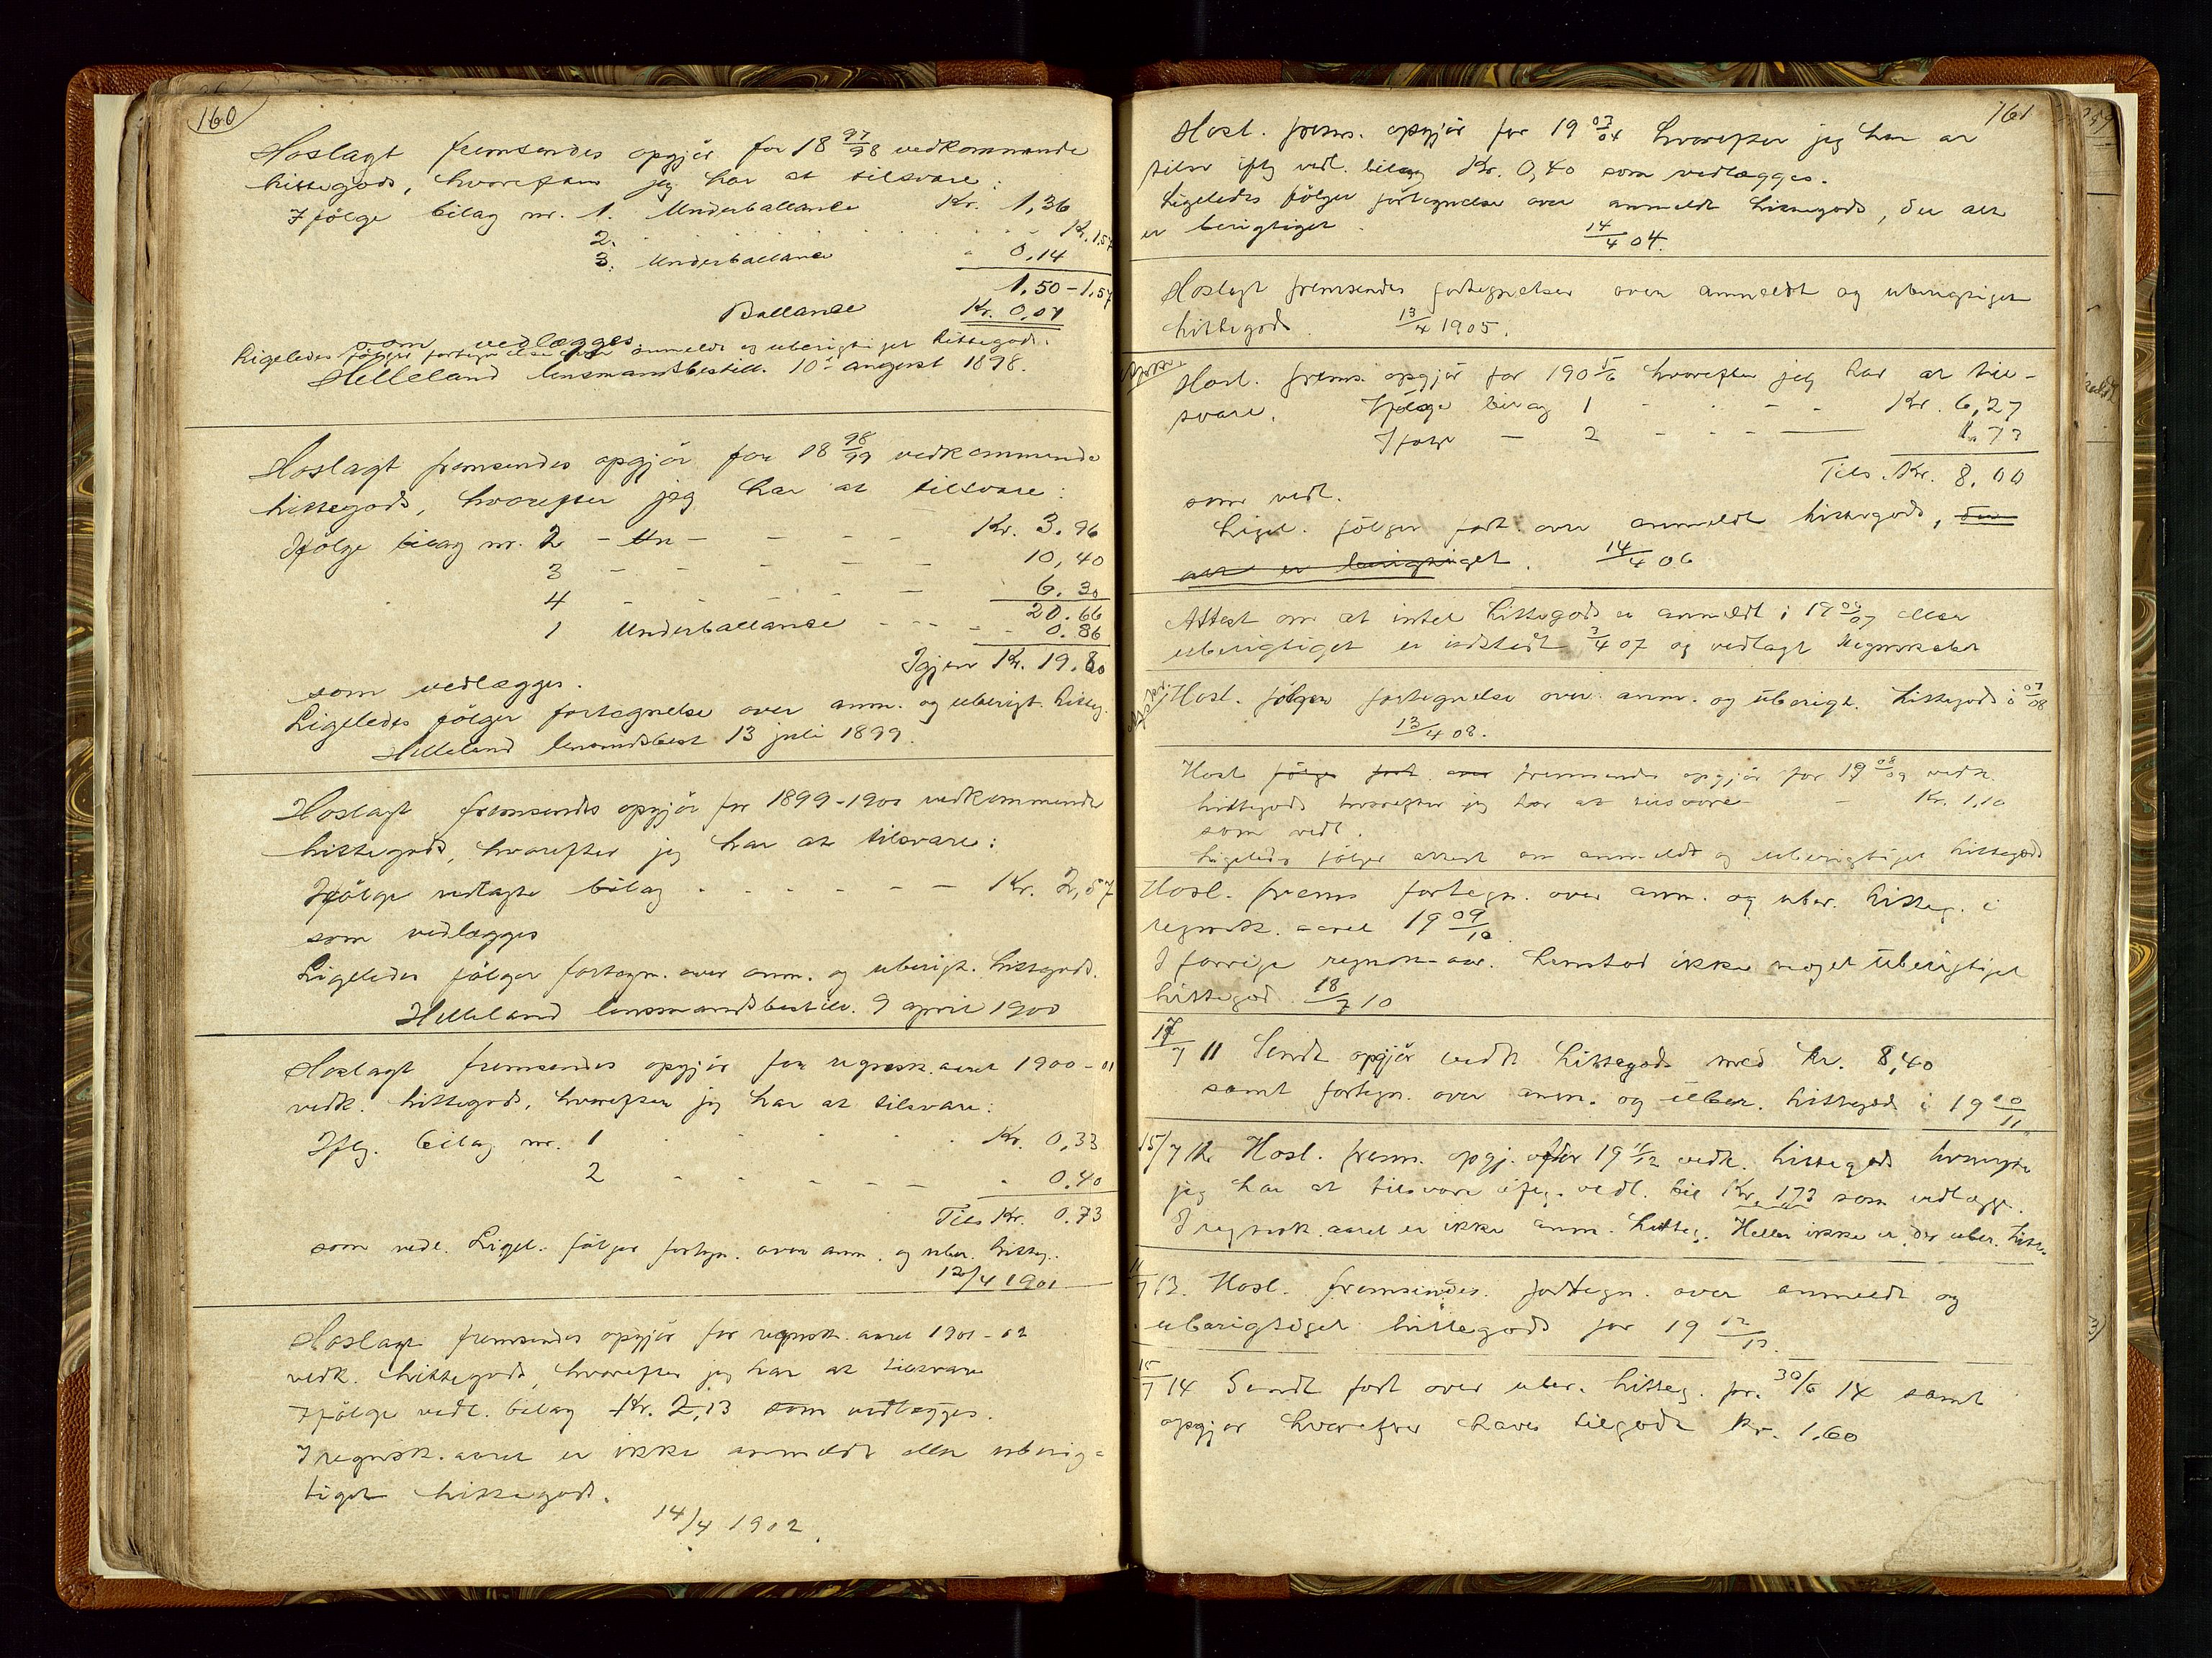 160
Hoslagt fremsendes opgjör for 18 97/98 vedkommende
hittegods, hvorefter jeg har at tilsvare:
Ifölge bilag nr. 1. Underballance Kr. 1,36
2. Kr. 1,57
3. Underballance 0,14
1,50 - 1,57
Ballance Kr. 0,07
som vedlægges.
Ligeledes fölger fortegnelse over anmeldt og uberigtiget hittegods.
Helleland lensmandsbestill. 10 august 1898.
Hoslagt fremsendes opgjör for 18 98/99 vedkommende
hittegods, hvorefter jeg har at tilsvare:
Ifölge bilag nr. 2 - Un - - - - Kr. 3.96
3 - - - - - 10,40
4 - - - - 6.30
20.66
1 Underballance - - - - 0.86
Igjen Kr. 19.80
som vedlægges.
Ligeledes fölger fortegnelse over anm. og uberigt. hitteg.
Helleland lensmdsbest 13 juli 1899.
Hoslagt fremsendes opgjör for 1899-1900 vedkommende
hittegods, hvorefter jeg har at tilsvare:
Ifölge vedlagte bilag - - - - - Kr. 2,57
som vedlægges
Ligeledes fölger fortegn. over anm. og uberigt. hittegods.
Helleland lensmandsbestill. 9 april 1900
Hoslagt fremsendes opgjör for regnsk. aaret 1900-01
vedk. hittegods, hvorefter jeg har at tilsvare:
Iflg. bilag nr. 1 Kr. 0,33
2 - - - - - 0.40
Tils Kr. 0.73
som vedl. Ligel. fölger fortgn. over anm. og uber. hitteg.
12/4 1901
Hoslagt fremsendes opgjör for regnsk. aaret 1901-02
vedk. hittegods, hvorefter jeg har at tilsvare
Ifölge vedl. bilag Kr. 2,13 som vedlægges.
I regnsk. aaret er ikke anmeldt eller uberig-
tiget hittegods.
14/4 1902.
161
Hosl. frems. opgjör for 19 03/04 hvorefter jeg har at
tilsv iflg vedl. bilag Kr. 0,40 som vedlægges.
Ligeledes fölger fortegnelse over anmeldt hittegods, der alt
er berigtiget. 14/4 04.
Hoslagt fremsendes fortegnelser over anmeldt og uberigtiget
hittegods. 13/4 1905.
Hosl. frems. opgjör for 190 5/6 hvorefter jeg har at til-
svare. Ifölge bilag 1 - - - - Kr. 6,27
Ifölge - 2 - - - 1.73
Tils. Kr. 8,00
som vedl.
Ligel. fölger fort. over anmeldt hittegods, der
alt er berigtiget. 14/4 06
Attest om at intet hittegods er anmeldt i 19 06/07 eller
uberigtiget er indstedt 3/4 07 og vedlagt Regnskabet
Hosl. fölger fortegnelse over anm. og uberigt. hittegods i 07/08
13/4 08.
Hosl fölger fort. over fremsendes opgjör for 19 08/09 vedk.
hittegods hvorefter jeg har at tilsvare - Kr. 1,10
som vedl.
Ligeledes fölger attest om anmeldt og uberigtiget hittegods
Hosl. frems fortegn. over anm. og uber. hitteg. i
regnsk. aaret 19 09/10.
I forrige regnsk-aar. henstod ikke noget uberigtiget
hittegods. 18/7 10
17/7 11 Sendt opgjör vedk hittegods med kr. 8,40
samt fortegn. over anm. og uber. hittegods i 19 10/11
15/7 12 Hosl. frems. opgj. for 19 11/12 vedk. hittegods hvorefter
jeg har at tilsvare iflg. vedl. bil Kr. 173 som vedlægges.
I regnsk. aaret er ikke anm. hitteg. Heller ikke er der uber. hitte.
11/7 13. Hosl. fremsendes. fortegn. over anmeldt og
uberigtiget hittegods for 19 12/13.
15/7 14 Sendt fort over uber. hitteg. pr. 30/6 14 samt
opgjör hvorefter haves tilgode kr. 1,60